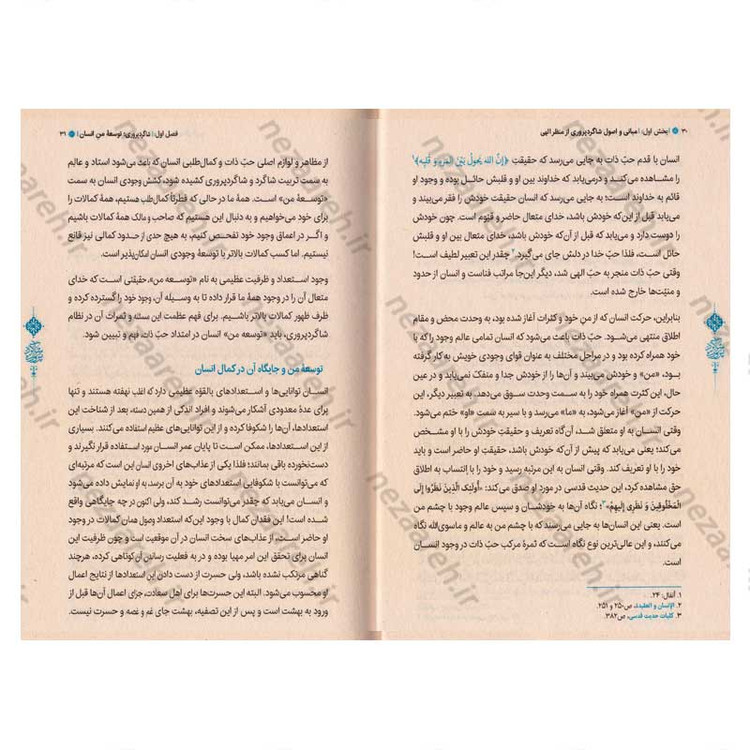 ۳۰ | بخش اول: | مبانی و اصول شاگردپروری از منظر الهی
انسان با قدم حبّ ذات به جایی می‌رسد که حقیقتِ ﴿إِنَّ اللهَ یَحولُ بَیْنَ المَرْءِ وَ قَلْبِه﴾۱
را مشاهده می‌کند و درمی‌یابد که خداوند بین او و قلبش حائل بوده و وجود او
قائم به خداوند است؛ به جایی می‌رسد که انسان حقیقت خودش را فقر می‌بیند و
می‌یابد قبل از این‌که خودش باشد، خدای متعال حاضر و قیّوم است. چون خودش
را دوست دارد و می‌یابد که قبل از آن‌که خودش باشد، خدای متعال بین او و قلبش
حائل است، فلذا حبّ خدا در دلش جای می‌گیرد.۲ چقدر این تعبیر لطیف است!
وقتی حبّ ذات منجر به حبّ الهی شد، دیگر این‌جا مراتب فناست و انسان از حدود
و منیّت‌ها خارج شده است.
بنابراین، حرکت انسان که از منِ خود و کثرات آغاز شده بود، به وحدت محض و مقام
اطلاق منتهی می‌شود. حبّ ذات باعث می‌شود که انسان تمامی عالم وجود را که با
خود همراه کرده بود و در مراحل مختلف به عنوان قوای وجودی خویش به کار گرفته
بود، «من» و خودش می‌بیند و آن‌ها را از خودش جدا و منفکّ نمی‌یابد و در عین
حال، این کثرت همراه خود را به سمت وحدت سوق می‌دهد. به تعبیر دیگر، این
حرکت از «من» آغاز می‌شود، به «ما» می‌رسد و با سیر به سمت «او» ختم می‌شود.
وقتی انسان به او متعلق شد، آن‌گاه تعریف و حقیقتِ خودش را با او مشخص
می‌کند؛ یعنی می‌یابد که پیش از آن‌که خودش باشد، حقیقتِ او حاضر است و باید
خود را با او تعریف کند. وقتی انسان به این مرتبه رسید و خود را با اِنتساب به اطلاق
حق مشاهده کرد، این حدیث قدسی در مورد او صدق می‌کند: «أُولٰئِکَ الَّذینَ نَظَرُوا إِلَی
المَخْلُوقینَ وَ نَظَری إِلَیهِمْ»۳؛ نگاه آن‌ها به خودشان و سپس عالم وجود با چشم من
است. یعنی این انسان‌ها به جایی می‌رسند که با چشم من به عالم و ماسوی‌الله نگاه
می‌کنند، و این عالی‌ترین نوع نگاه است که ثمرهٔ مرکب حبّ ذات در وجود انسان
۱. أنفال: ۲۴.
۲. الإنسان و العقیدة، ص۲۵۰ و ۲۵۱.
۳. کلیات حدیث قدسی، ص۳۸۲.
فصل اول: | شاگردپروری؛ توسعهٔ منِ انسان | ۳۱
از مظاهر و لوازم اصلی حبّ ذات و کمال‌طلبی انسان که باعث می‌شود استاد و عالم
به سمت تربیت شاگرد و شاگردپروری کشیده شود، کشش وجودی انسان به سمت
«توسعهٔ من» است. همهٔ ما در حالی که فطرتاً کمال‌طلب هستیم، همهٔ کمالات را
برای خود می‌خواهیم و به دنبال این هستیم که صاحب و مالک همهٔ کمالات باشیم
و اگر در اعماق وجود خود تفحّص کنیم، به هیچ حدی از حدود کمالی نیز قانع
نیستیم. اما کسب کمالات بالاتر با توسعهٔ وجودی انسان امکان‌پذیر است.
وجود استعداد و ظرفیت عظیمی به نام «توسعه من»، حقیقتی است که خدای
متعال آن را در وجود همهٔ ما قرار داده تا به وسیله آن، وجود خود را گسترده کرده و
ظرف ظهور کمالات بالاتر باشیم. برای فهم عظمت این سنّه و ثمرات آن در نظام
شاگردپروری، باید «توسعه من» انسان در امتداد حبّ ذات، فهم و تبیین شود.
توسعهٔ من و جایگاه آن در کمال انسان
انسان توانایی‌ها و استعدادهای بالقوه عظیمی دارد که اغلب نهفته هستند و تنها
برای عدهٔ معدودی آشکار می‌شوند و افراد اندکی از همین دسته، بعد از شناخت این
استعدادها، آن‌ها را شکوفا کرده و از این توانایی‌های عظیم استفاده می‌کنند. بسیاری
از این استعدادها، ممکن است تا پایان عمر انسان مورد استفاده قرار نگیرند و
دست‌نخورده باقی بمانند؛ فلذا یکی از عذاب‌های اخروی انسان این است که مرتبه‌ای
که می‌توانست با شکوفایی استعدادهای خود به آن برسد به او نمایش داده می‌شود
و انسان می‌یابد که چقدر می‌توانست رشد کند، ولی اکنون در چه جایگاهی واقع
شده است! این فقدان کمال با وجود این‌که استعداد وصول همان کمالات در وجود
او حاضر است، از عذاب‌های سخت انسان در آن موقعیت است و چون ظرفیت این
انسان برای تحقق این امر مهیا بوده و در به فعلیت رساندن آن کوتاهی کرده، هرچند
گناهی مرتکب نشده باشد، ولی حسرت از دست دادن این استعدادها از نتایج اعمال
او محسوب می‌شود. البته این حسرت‌ها برای اهل سعادت، جزای اعمال آن‌ها قبل از
ورود به بهشت است و پس از این تصفیه، بهشت جای غم و غصه و حسرت نیست.
nezaareh.ir